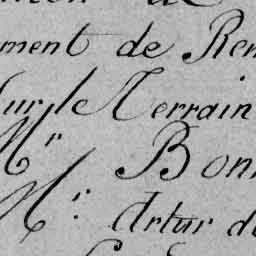 ment de Ren
sur le Terrain
Mr Bonn
Mr. Artur de